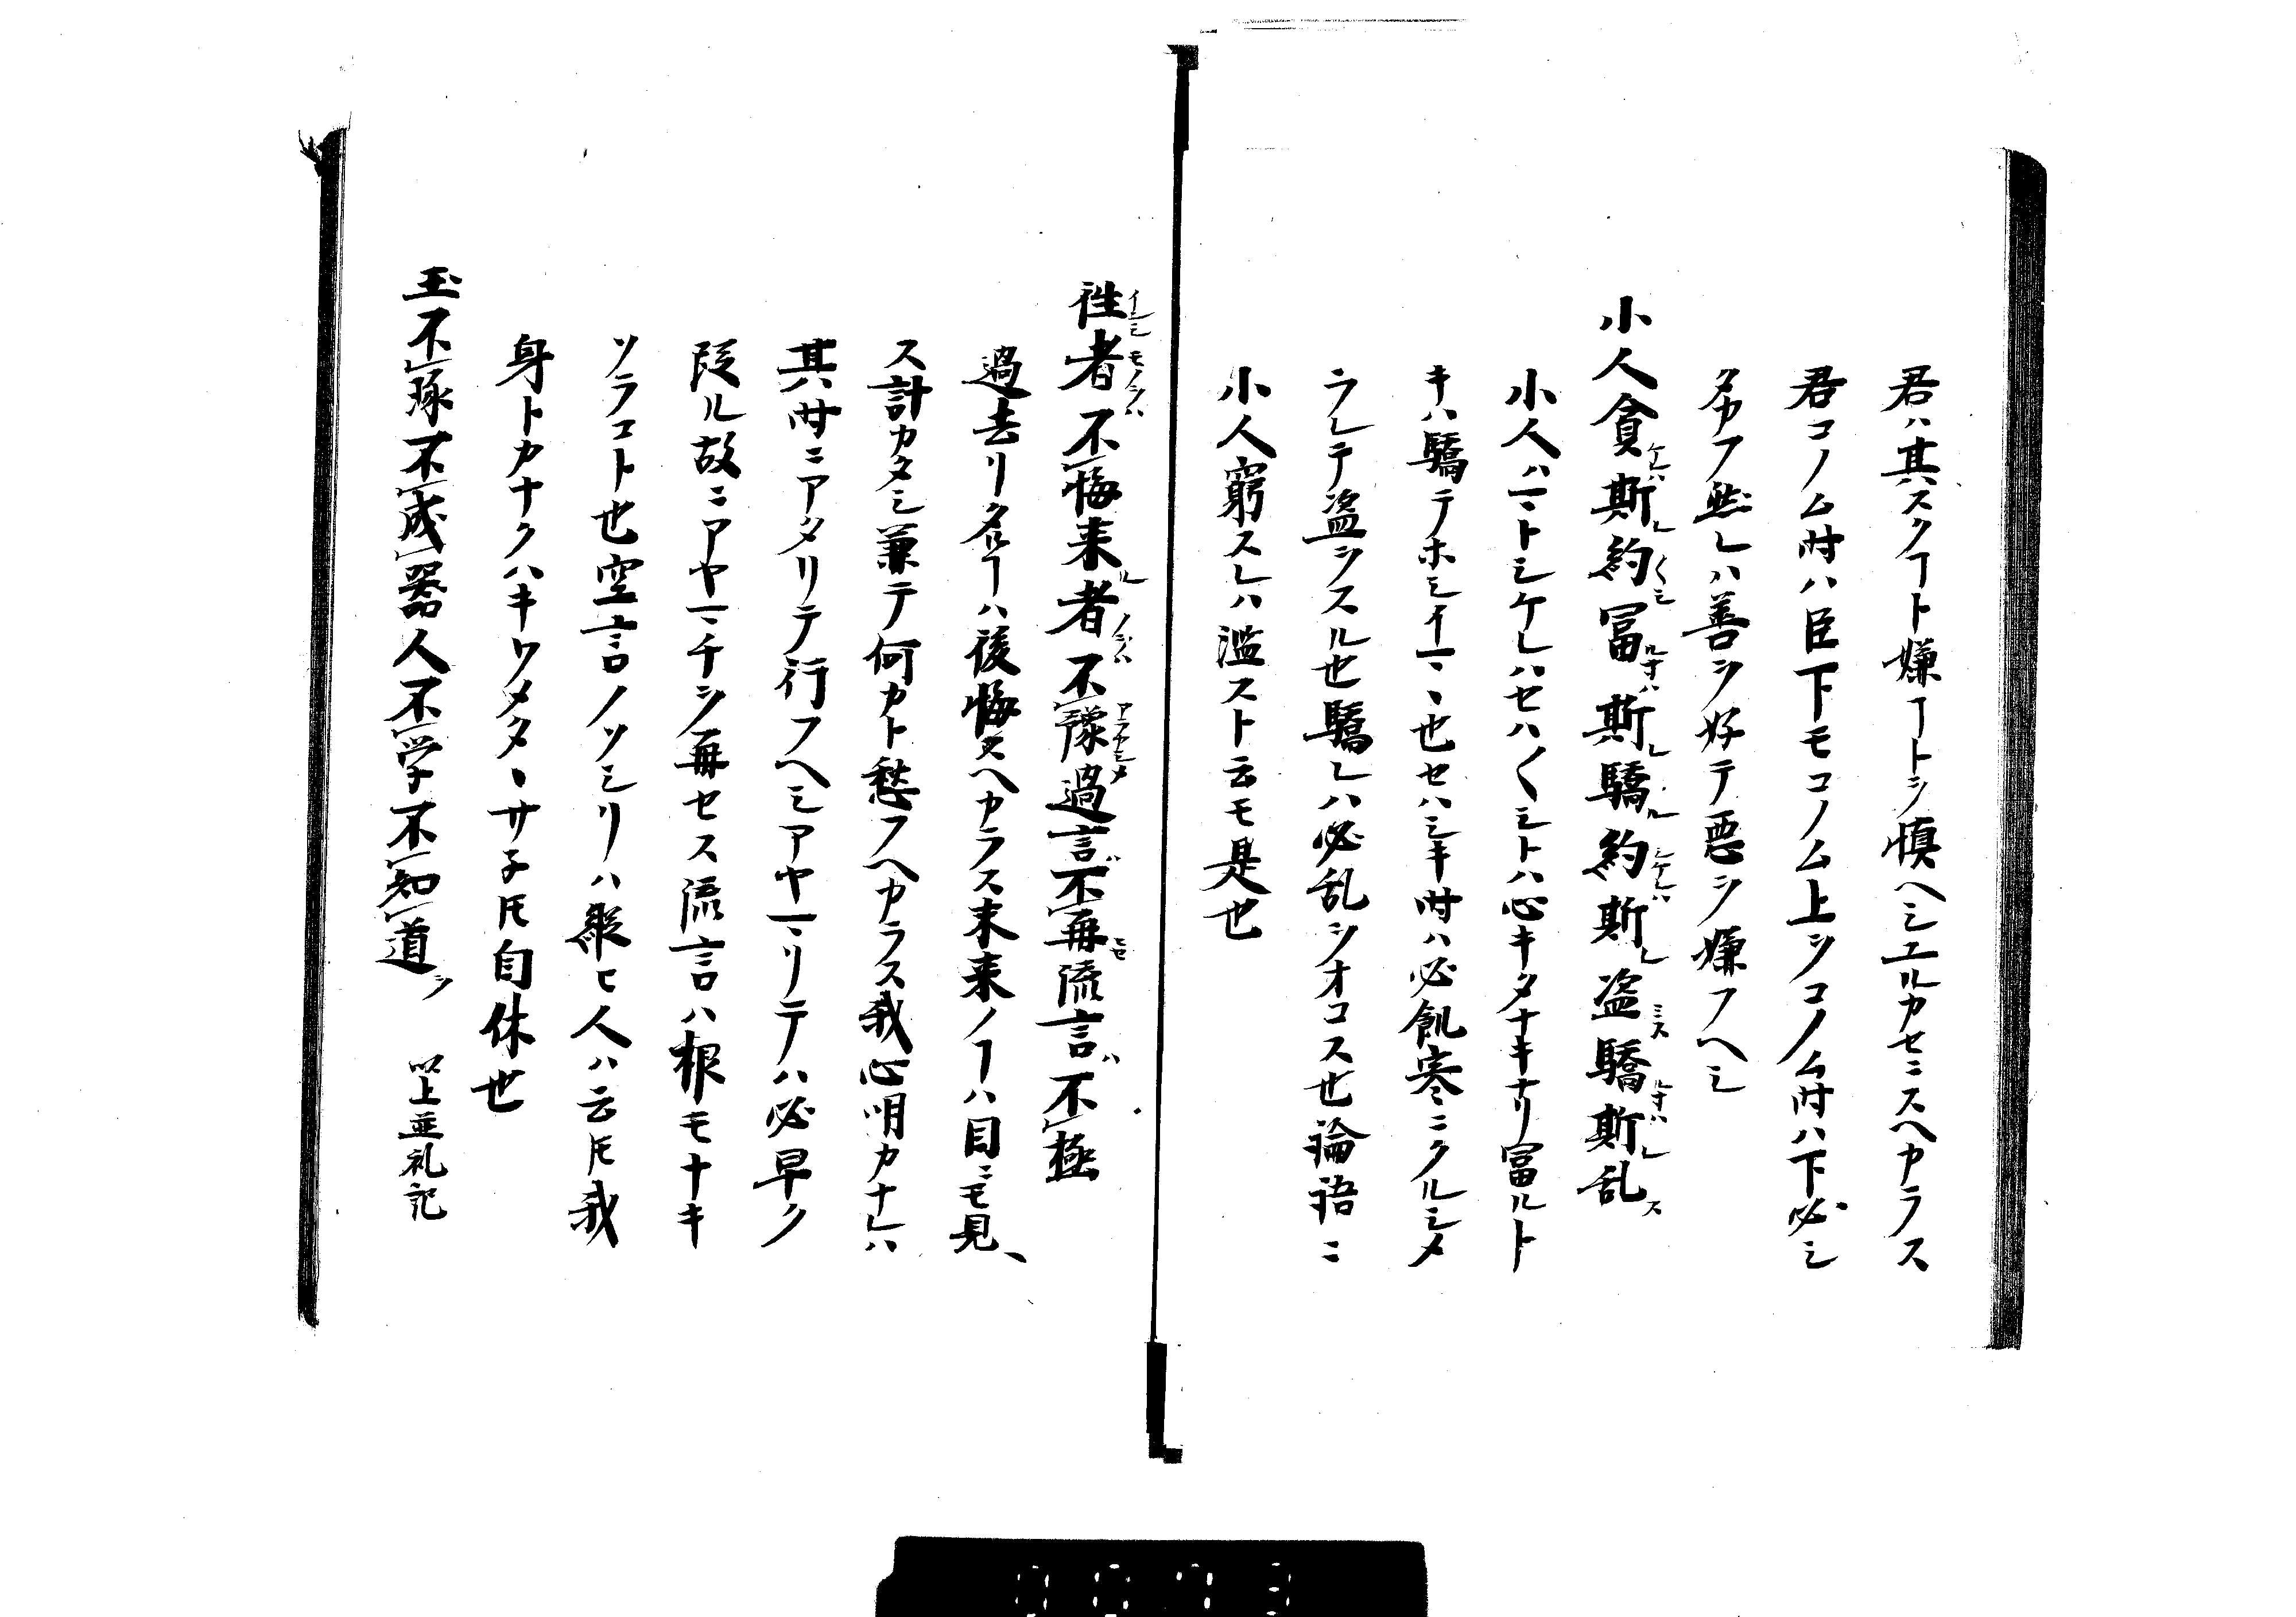 君ハ其スクヿト嫌ヿトヲ慎ヘシユルカセニスヘカラス
君コノム时ハ臣下モコノム上ヲコノム时ハ下必シ
タカフ然レハ善ヲ好テ悪ヲ嫌フヘシ
小人貧斯約冨斯驕約斯盗驕斯乱
小人ハマトシケレハセハ〱シトハ心キタナキナリ冨ルト
キハ驕テホシイマヽ也セハシキ时ハ必飢寒ニクルシメ
ラレテ盗ヲスル也驕レハ必乱ヲオコス也論語ニ
小人窮スレハ濫スト云モ是也
徃者不悔来者不豫過言不再流言不極
過去リタルヿハ後悔スヘカラス未来ノヿハ目ニモ見ヘ
ス計カタシ兼テ何カト愁フヘカラス我心明カナレハ
其时ニアタリテ行フヘシアヤマリテハ必早ク
改ル故ニアヤマチヲ再セス流言ハ根モナキ
ソラコト也空言ノソシリハ縦ヒ人ハ云𪜈我
身トカナクハキワメタヽサ子𪜈自休也
玉不琢不成器人不学不知道 以上並礼記